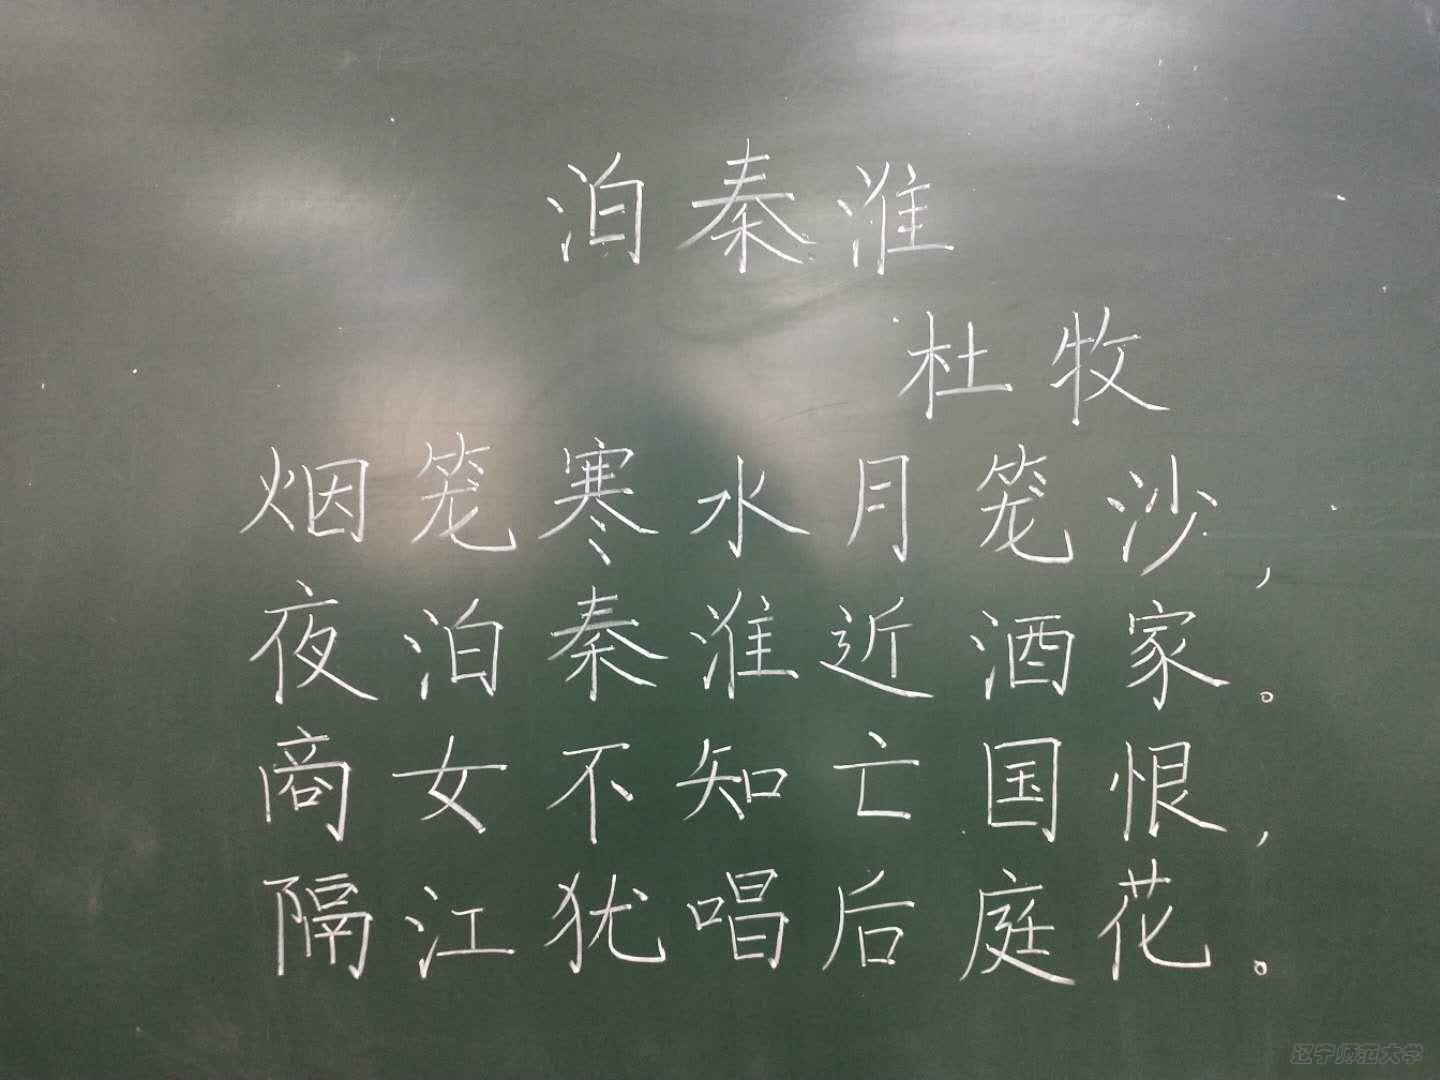 泊秦淮
杜牧
烟笼寒水月笼沙，
夜泊秦淮近酒家。
商女不知亡国恨，
隔江犹唱后庭花。
辽宁师范大学